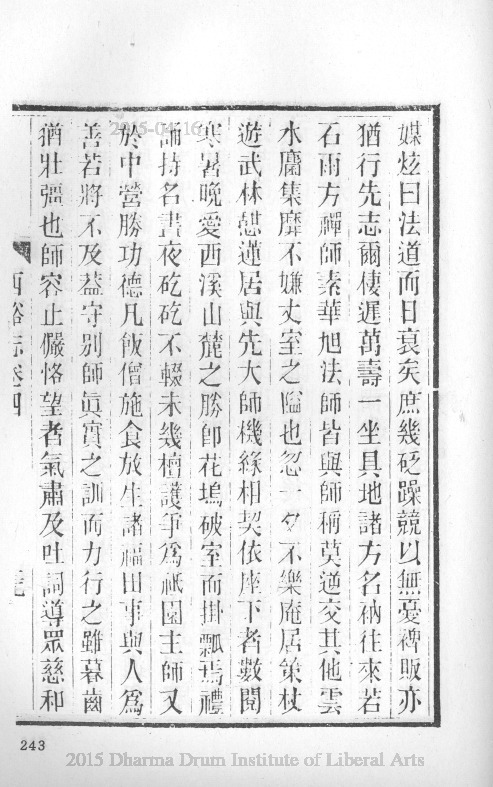 媒炫曰法道而日衰矣庶幾砭躁競以無憂裨販亦
猶行先志爾棲遲萬壽一坐具地諸方名衲往來若
石雨方禪師素華旭法師皆與師稱莫逆交其他雲
水麕集靡不嫌丈室之隘也忽一夕不樂庵居策杖
遊武林憇蓮居與先大師機緣相契依座下者數閱
寒暑晚愛西溪山麓之勝卽花塢破室而掛瓢焉禮
誦持名晝夜矻矻不輟未幾檀護爭爲祇園主師又
於中營勝功德凡飯僧施食放生諸福田事與人爲
善若將不及葢守別師眞實之訓而力行之雖暮齒
猶壯彊也師容止儼恪望者氣肅及吐詞導眾慈和
西谿志卷四
243
2015-04-16
2015 Dharma Drum Institute of Liberal Arts